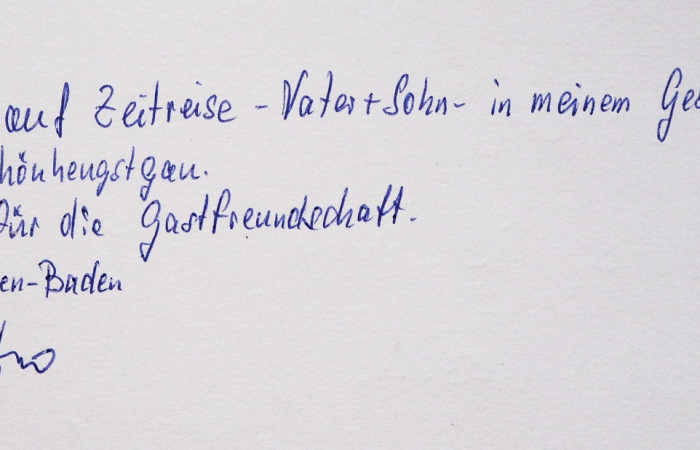 auf Zeitreise - Vater + Sohn - in meinem Ge
hönhengstgau.
für die Gastfreundschaft.
en-Baden